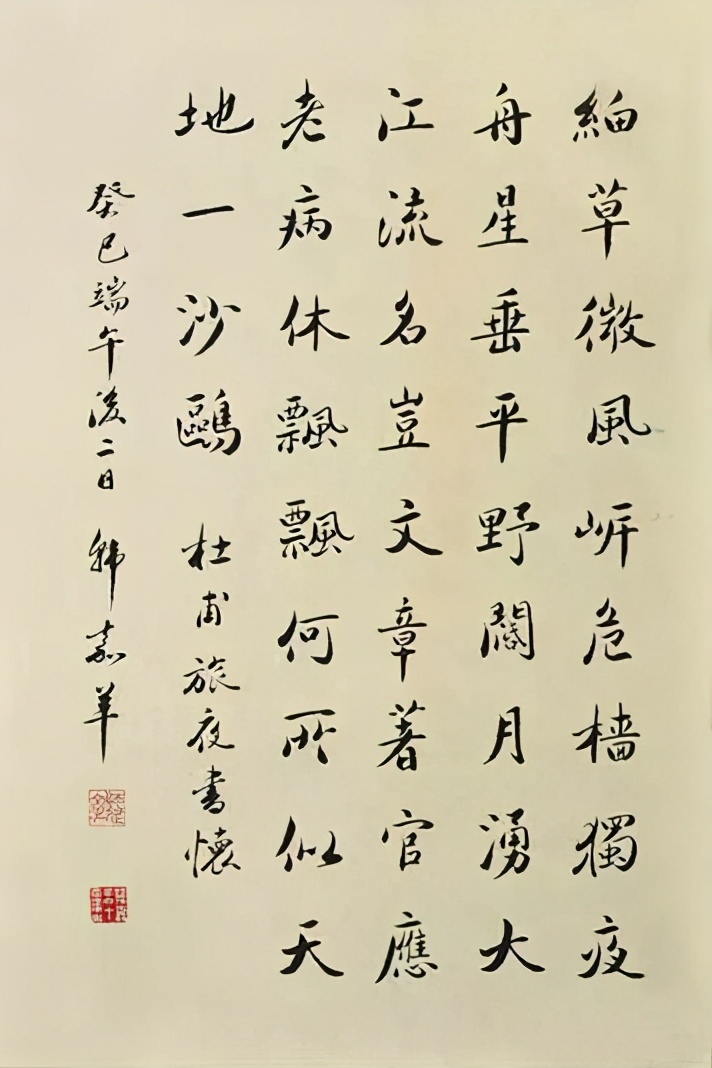 細草微風岸危檣獨夜
舟星垂平野闊月湧大
江流名豈文章著官應
老病休飄飄何所似天
地一沙鷗 杜甫旅夜書懷
癸巳端午後二日 韓嘉羊